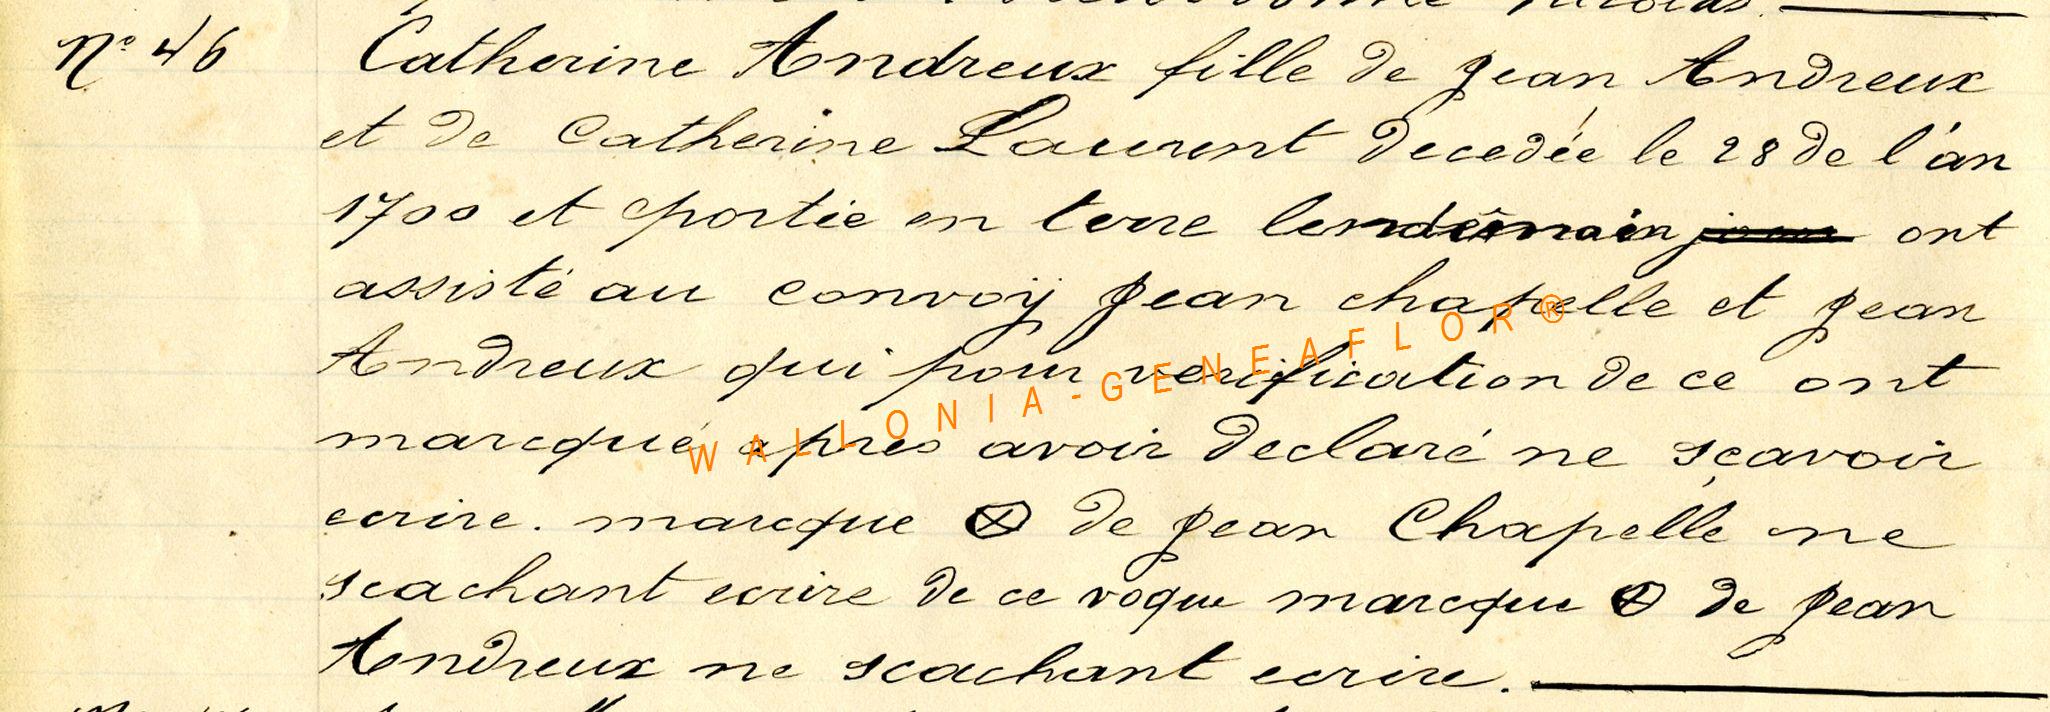 N° 46 Catherine Andreux fille de Jean Andreux
et de Catherine Laurent decedée le 28 de l'an
1700 et portée en terre lendemain jour ont
assisté au convoÿ Jean chapelle et Jean
Andreux qui pour verification de ce ont
marcqué apres avoir declaré ne sçavoir
ecrire. marcque ⊗ de Jean Chapelle ne
scachant ecrire de ce voque marcque ⊗ de Jean
Andreux ne scachant ecrire.
WALLONIA-GENEAFLOR®